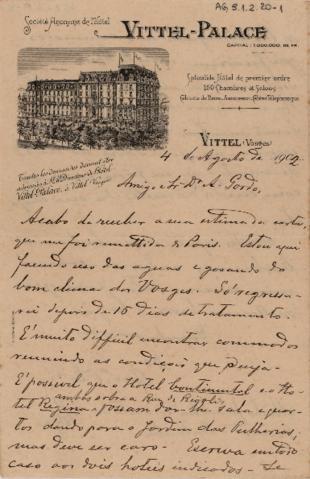 AG.5.1.2.20-1
Société Anonyme de l'Hôtel
VITTEL-PALACE
CAPITAL: 1.000.000 DE FR.
Splendide Hôtel de premier ordre
150 Chambres et Salons
VITTEL (Vosges)
4 de Agosto de 1902
Toutes les demandes doivent être
adressées à M. le Directeur de l'Hôtel
Vittel-Palace, à Vittel (Vosges)
Amigo e Sr. Dr. A. Gordo,
Acabo de receber a sua estimada carta,
que me foi remettida de Paris. Estou aqui
fazendo uso das aguas e gosando do
bom clima dos Vosges. Só regressa-
rei depois de 15 dias de tratamento.
É muito difficil encontrar commodos
reunindo as condições que deseja.
É possivel que o Hotel Continental e o Ho-
ambos sobre a Rua de Rivoli,
tel Regina possam dar-lhe sala e quar-
tos dando para o Jardim das Tulherias,
mas deve ser caro. Escreva em todo
caso aos dois hoteis indicados. Se